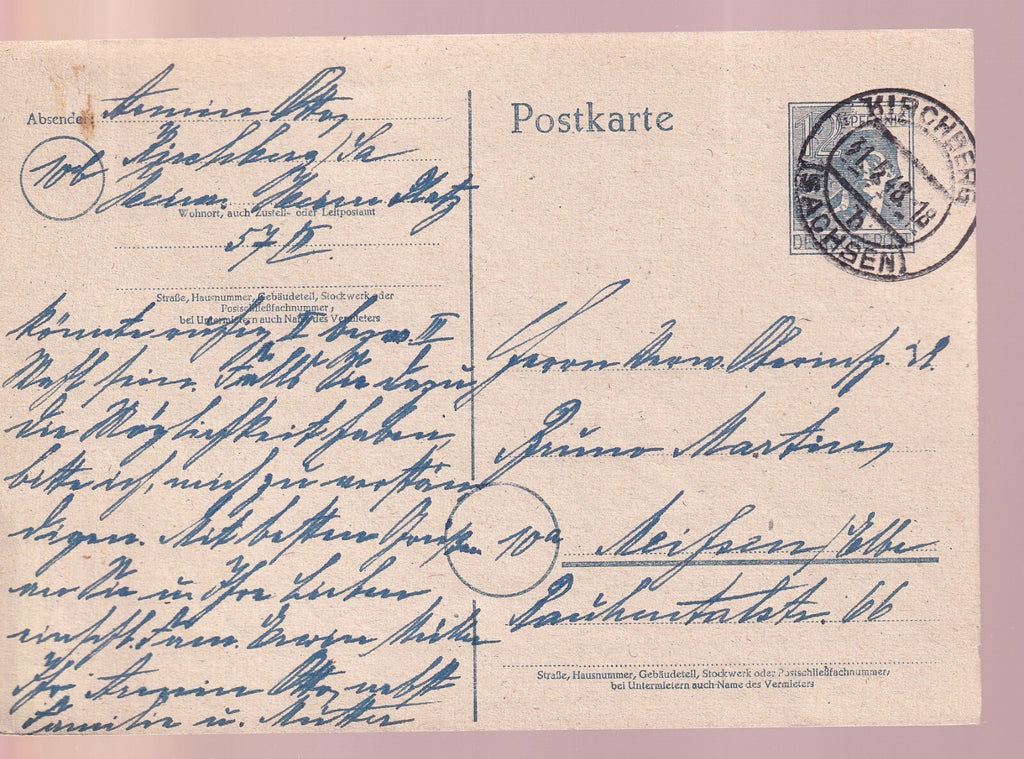 Absender: Armin Otto,
10b Kirchberg/Sa
Platz
Wohnort, auch Zustell- oder Leitpostamt
57 II
Straße, Hausnummer, Gebäudeteil, Stockwerk oder
Postschließfachnummer;
bei Untermietern auch Name des Vermieters
könnte II bezw. III
sein. Falls Sie dazu
die Möglichkeit haben,
bitte ich, mich zu verstän
digen. Mit besten Grüßen
an Sie u. Ihre Lieben
einschl. Fam. Erwin
Ihr Armin Otto, nebst
Familie u. Mutter
Postkarte
12 PFENNIG
DEUTSCHE POST
KIRCHBERG
(SACHSEN)
48.-18
b
Herrn Verw. Oberinsp.
Bruno Martin,
10a Meißen/Elbe
66
Straße, Hausnummer, Gebäudeteil, Stockwerk oder Postschließfachnummer;
bei Untermietern auch Name des Vermieters